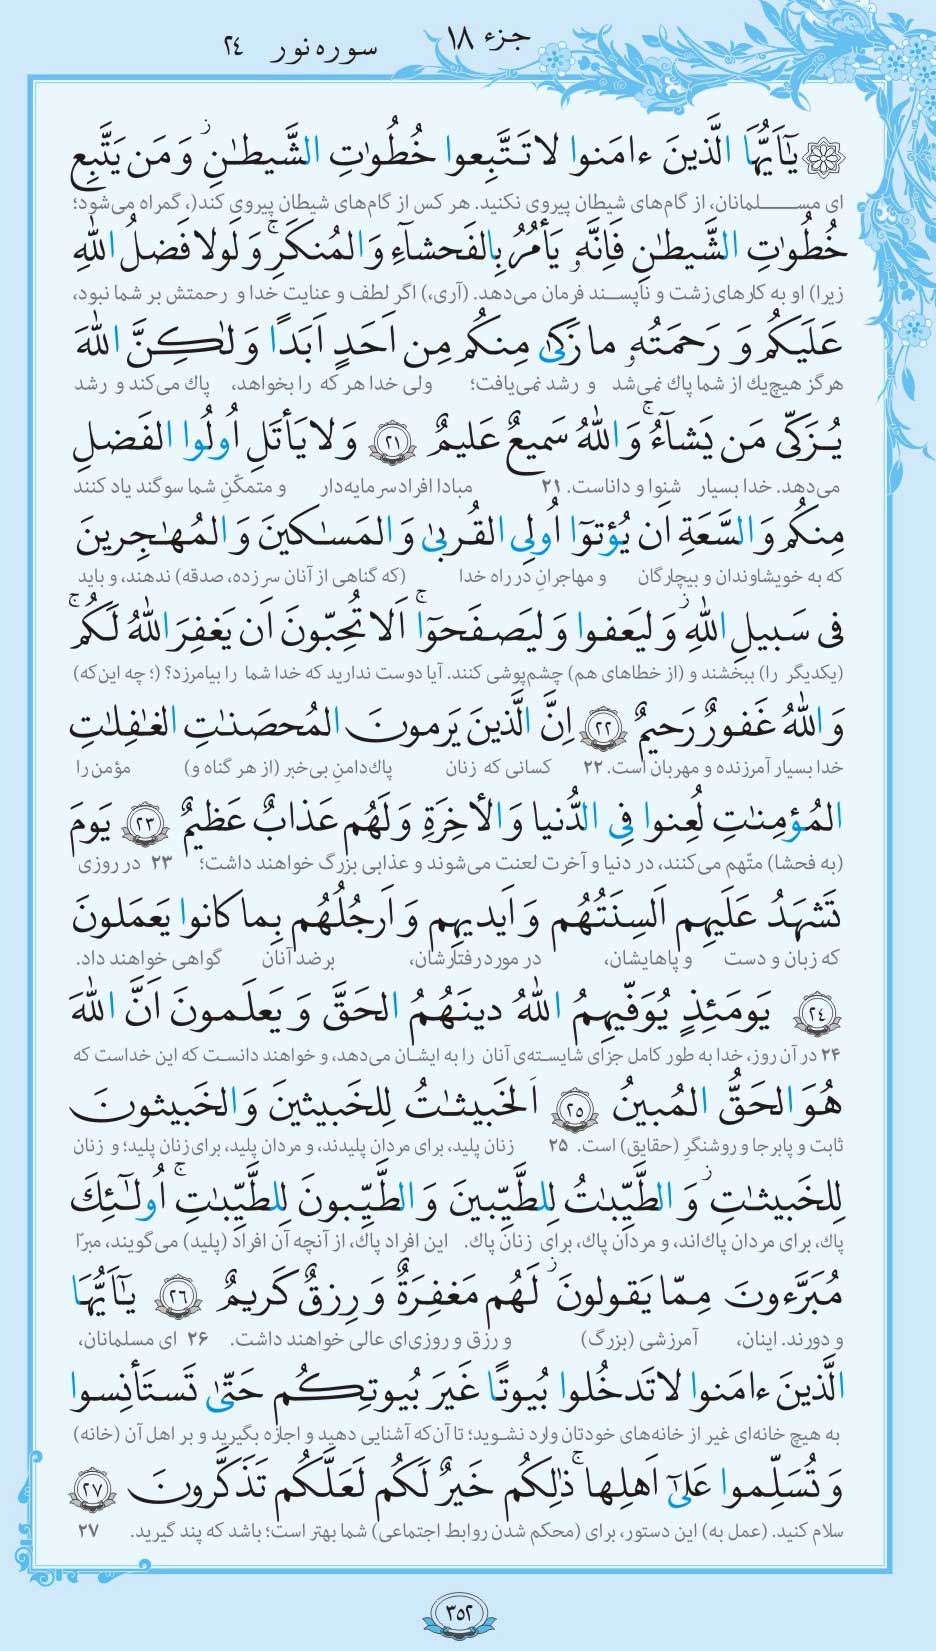 جزء ۱۸
سوره نور ۲۴
يٰٓاَيُّهَا الَّذينَ ءامَنوا لا تَتَّبِعوا خُطُوٰتِ الشَّيطـٰنِ ۚ وَ مَن يَتَّبِع
ای مسلمانان، از گام‌های شیطان پیروی نکنید. هر کس از گام‌های شیطان پیروی کند(، گمراه می‌شود؛
خُطُوٰتِ الشَّيطـٰنِ فَاِنَّهٗ يَأمُرُ بِالفَحشاءِ وَ المُنكَرِ ۚ وَ لَولا فَضلُ اللهِ
زیرا) او به کارهای زشت و ناپسند فرمان می‌دهد. (آری،) اگر لطف و عنایت خدا و رحمتش بر شما نبود،
عَلَيكُم وَ رَحمَتُهٗ ما زَكىٰ مِنكُم مِن اَحَدٍ اَبَدًا وَ لٰكِنَّ اللهَ
هرگز هیچ‌یك از شما پاك نمی‌شد و رشد نمی‌یافت؛ ولی خدا هر که را بخواهد، پاك می‌کند و رشد
يُزَكّى مَن يَشاءُ ۚ وَ اللهُ سَميعٌ عَليمٌ ۲۱ وَ لا يَأتَلِ اُولُوا الفَضلِ
می‌دهد. خدا بسیار شنوا و داناست. ۲۱ مبادا افراد سرمایه‌دار و متمکّنِ شما سوگند یاد کنند
مِنكُم وَ السَّعَةِ اَن يُؤتوٓا اُولِى القُربىٰ وَ المَسـٰكينَ وَ المُهـٰجِرينَ
که به خویشاوندان و بیچارگان و مهاجرانِ در راه خدا (که گناهی از آنان سر زده، صدقه) ندهند، و باید
فى سَبيلِ اللهِ ۖ وَ ليَعفوا وَ ليَصفَحوٓا ۗ اَلا تُحِبّونَ اَن يَغفِرَ اللهُ لَكُم ۗ
(یکدیگر را) ببخشند و (از خطاهای هم) چشم‌پوشی کنند. آیا دوست ندارید که خدا شما را بیامرزد؟ (؛ چه این‌که)
وَ اللهُ غَفورٌ رَحيمٌ ۲۲ اِنَّ الَّذينَ يَرمونَ المُحصَنـٰتِ الغـٰفِلـٰتِ
خدا بسیار آمرزنده و مهربان است. ۲۲ کسانی که زنان پاك‌دامنِ بی‌خبر (از هر گناه و) مؤمن را
المُؤمِنـٰتِ لُعِنوا فِى الدُّنيا وَ الأخِرَةِ وَ لَهُم عَذابٌ عَظيمٌ ۲۳ يَومَ
(به فحشا) متّهم می‌کنند، در دنیا و آخرت لعنت می‌شوند و عذابی بزرگ خواهند داشت؛ ۲۳ در روزی
تَشهَدُ عَلَيهِم اَلسِنَتُهُم وَ اَيديهِم وَ اَرجُلُهُم بِما كانوا يَعمَلونَ
که زبان و دست و پاهایشان، در مورد رفتارشان، بر ضد آنان گواهی خواهند داد.
۲۴ يَومَئِذٍ يُوَفّيهِمُ اللهُ دينَهُمُ الحَقَّ وَ يَعلَمونَ اَنَّ اللهَ
۲۴ در آن روز، خدا به طور کامل جزای شایسته‌ی آنان را به ایشان می‌دهد، و خواهند دانست که این خداست که
هُوَ الحَقُّ المُبينُ ۲۵ اَلخَبيثـٰتُ لِلخَبيثينَ وَ الخَبيثونَ
ثابت و پابرجا و روشنگرِ (حقایق) است. ۲۵ زنان پلید، برای مردان پلیدند، و مردان پلید، برای زنان پلید؛ و زنان
لِلخَبيثـٰتِ ۖ وَ الطَّيِّبـٰتُ لِلطَّيِّبينَ وَ الطَّيِّبونَ لِلطَّيِّبـٰتِ ۚ اُولـٰئِكَ
پاك، برای مردان پاك‌اند، و مردان پاك، برای زنان پاك. این افراد پاك، از آنچه آن افراد (پلید) می‌گویند، مبرّا
مُبَرَّءونَ مِمّا يَقولونَ ۖ لَهُم مَغفِرَةٌ وَ رِزقٌ كَريمٌ ۲۶ يٰٓاَيُّهَا
و دورند. اینان، آمرزشی (بزرگ) و رزق و روزی‌ای عالی خواهند داشت. ۲۶ ای مسلمانان،
الَّذينَ ءامَنوا لا تَدخُلوا بُيوتًا غَيرَ بُيوتِكُم حَتّىٰ تَستَأنِسوا
به هیچ خانه‌ای غیر از خانه‌های خودتان وارد نشوید؛ تا آن‌که آشنایی دهید و اجازه بگیرید و بر اهل آن (خانه)
وَ تُسَلِّموا عَلىٰٓ اَهلِها ۚ ذٰلِكُم خَيرٌ لَكُم لَعَلَّكُم تَذَكَّرونَ ۲۷
سلام کنید. (عمل به) این دستور، برای (محکم شدن روابط اجتماعی) شما بهتر است؛ باشد که پند گیرید. ۲۷
۳۵۲